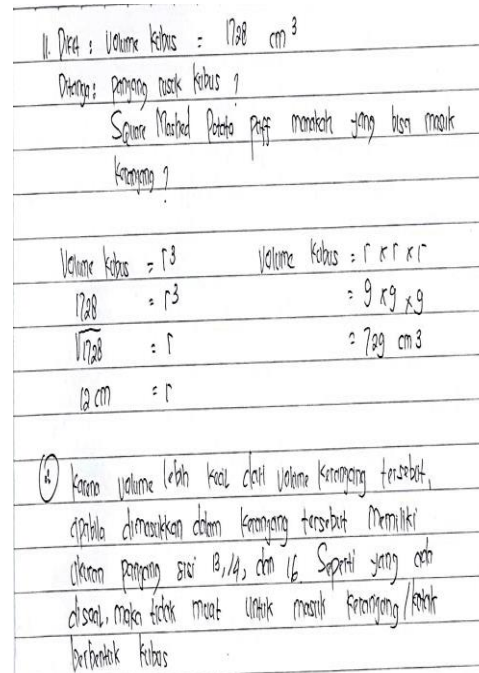 11. Diket : Volume kubus = 1728 cm³
Ditanya : panjang rusuk kubus ?
Square Mashed Potato puff manakah yang bisa masuk
keranjang ?
Volume kubus = r³
1728 = r³
√1728 = r
12 cm = r
Volume kubus = r x r x r
= 9 x 9 x 9
= 729 cm 3
∴ Karena volume lebih kecil dari volume keranjang tersebut,
apabila dimasukkan dalam keranjang tersebut memiliki
ukuran panjang sisi 13, 14, dan 16 Seperti yang ada
disoal, maka tidak muat untuk masuk keranjang / kotak
berbentuk kubus